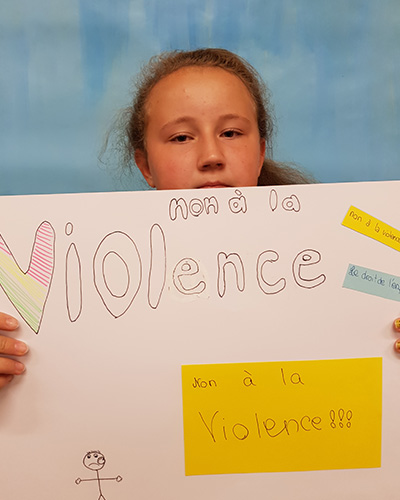 non à la
Violence
non à la violence
le droit de l'en
Non à la
Violence !!!